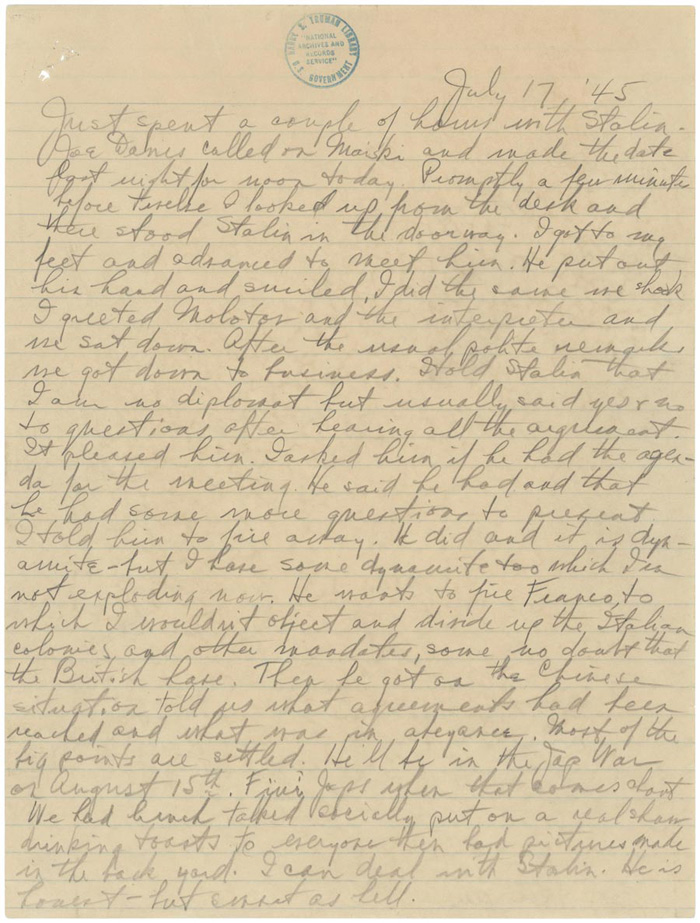 HARRY S. TRUMAN LIBRARY
"NATIONAL
ARCHIVES AND
RECORDS
SERVICE"
U.S. GOVERNMENT
July 17, '45
Just spent a couple of hours with Stalin.
Joe Davies called on Maiski and made the date
last night for noon today. Promptly a few minutes
before twelve I looked up from the desk and
there stood Stalin in the doorway. I got to my
feet and advanced to meet him. He put out
his hand and smiled. I did the same we shook
I greeted Molotov and the interpreter and
we sat down. After the usual polite remarks
we got down to business. I told Stalin that
I am no diplomat but usually said yes & no
to questions after hearing all the argument.
It pleased him. I asked him if he had the agen-
da for the meeting. He said he had and that
he had some more questions to present
I told him to fire away. He did and it is dyn-
amite - but I have some dynamite too which I'm
not exploding now. He wants to fire Franco to
which I wouldn't object and divide up the Italian
colonies and other mandates, some no doubt that
the British have. Then he got on the Chinese
situation told us what agreements had been
reached and what was in abeyance. Most of the
big points are settled. He'll be in the Jap War
on August 15th. Fini Japs when that comes about
We had lunch talked socially put on a real show
drinking toasts to everyone then had pictures made
in the back yard. I can deal with Stalin. He is
honest - but smart as hell.